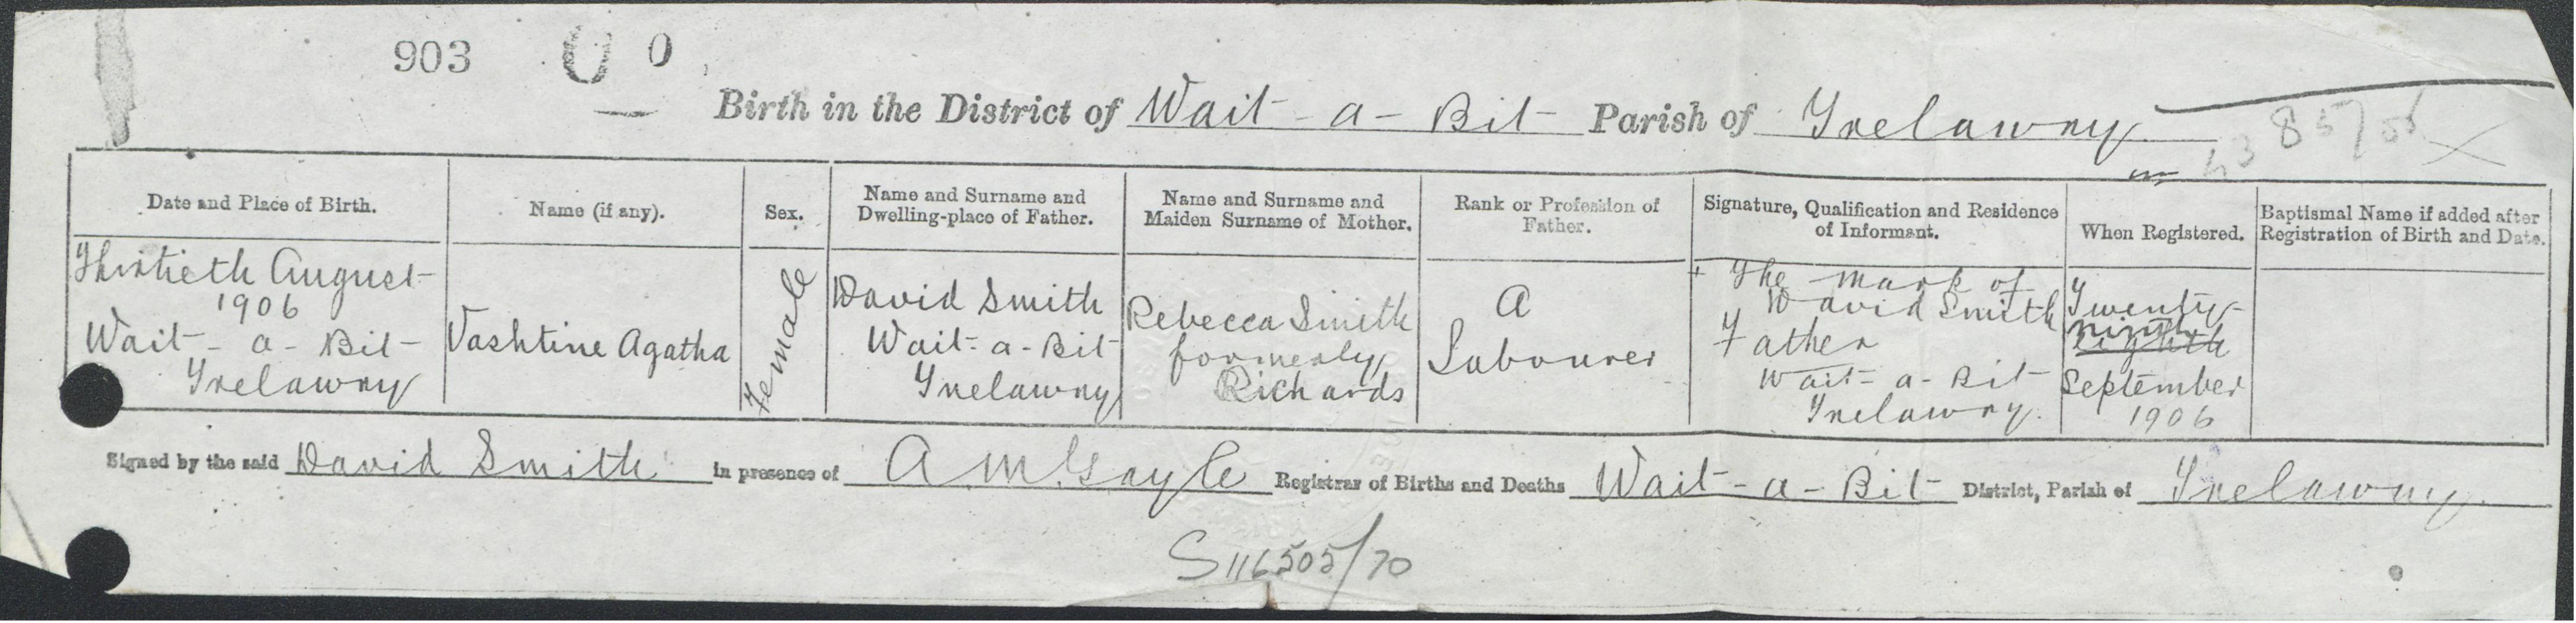 903 0 0
Birth in the District of Wait-a-Bit Parish of Trelawny
Date and Place of Birth.
Name (if any).
Sex.
Name and Surname and
Dwelling-place of Father.
Name and Surname and
Maiden Surname of Mother.
Rank or Profession of
Father.
Signature, Qualification and Residence
of Informant.
When Registered.
Baptismal Name if added after
Registration of Birth and Date.
Thirtieth August
1906
Wait-a-Bit
Trelawny
Vashtine Agatha
Female
David Smith
Wait-a-Bit
Trelawny
Rebecca Smith
formerly
Richards
A
Labourer
+ The mark of
David Smith
Father
Wait-a-Bit
Trelawny.
Twenty-
ninth
eighth
September
1906
Signed by the said David Smith in presence of A M. Gayle Registrar of Births and Deaths Wait-a-Bit District, Parish of Trelawny.
S116505/70